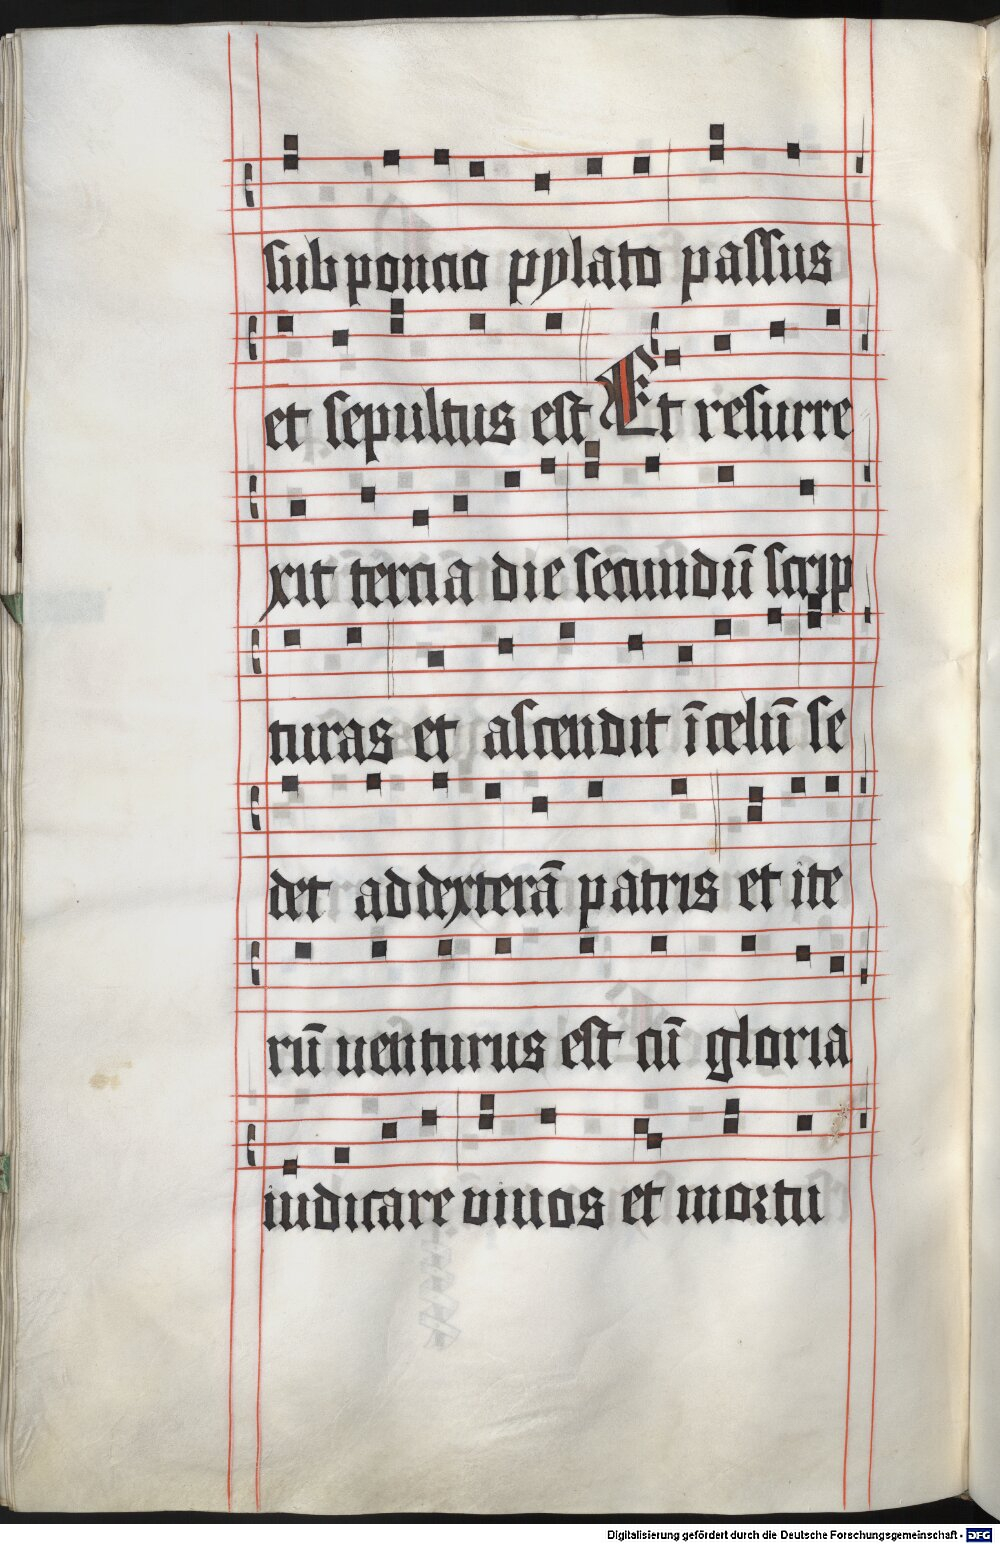 sub poncio pylato passus
et sepultus est Et resurre
xit tercia die secundū scrip
turas et ascendit ī celū se
det ad dexterā patris et ite
rū uenturus est cū gloria
iudicare viuos et mortu
Digitalisierung gefördert durch die Deutsche Forschungsgemeinschaft - DFG